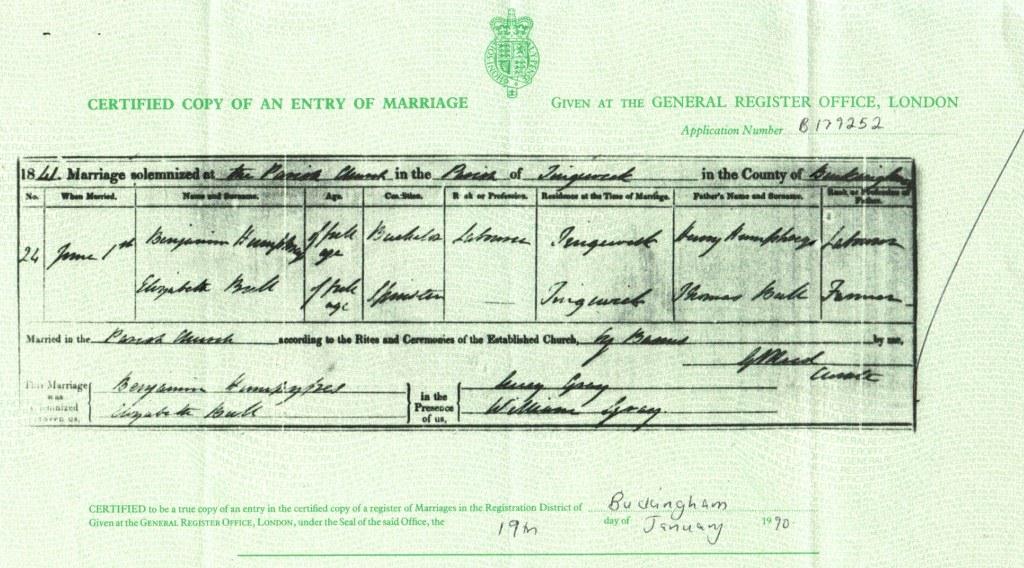 CERTIFIED COPY OF AN ENTRY OF MARRIAGE
GIVEN AT THE GENERAL REGISTER OFFICE, LONDON
Application Number B179252
1841. Marriage solemnized at the Parish Church in the Parish of Tingewick in the County of Buckingham
No. When Married. Name and Surname. Age. Condition. Rank or Profession. Residence at the Time of Marriage. Father's Name and Surname. Rank or Profession of Father.
24 June 1st Benjamin Humphrey of full age Bachelor Labourer Tingewick Henry Humphreys Labourer
Elizabeth Bull of full age Spinster Tingewick Thomas Bull Farmer
Married in the Parish Church according to the Rites and Ceremonies of the Established Church, by Banns by me,
Curate
This Marriage was solemnized between us, Benjamin Humphres in the Presence of us,
Elizabeth Bull William Gray
CERTIFIED to be a true copy of an entry in the certified copy of a register of Marriages in the Registration District of Buckingham
Given at the GENERAL REGISTER OFFICE, LONDON, under the Seal of the said Office, the 19th day of January 1990